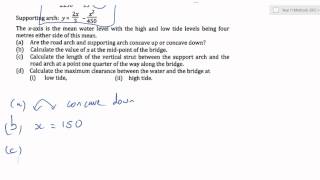 Supporting arch: y = 2x/3 - x²/450
The x-axis is the mean water level with the high and low tide levels being four
metres either side of this mean.
(a) Are the road arch and supporting arch concave up or concave down?
(b) Calculate the value of x at the mid-point of the bridge.
(c) Calculate the length of the vertical strut between the support arch and the
road arch at a point one quarter of the way along the bridge.
(d) Calculate the maximum clearance between the water and the bridge at
(i) low tide, (ii) high tide.
(a) concave down
(b) x = 150
(c)